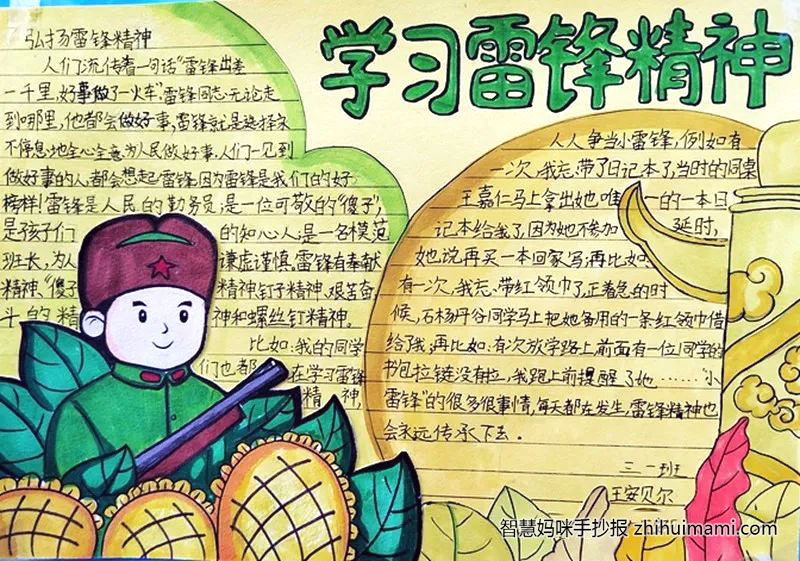 学习雷锋精神
弘扬雷锋精神
人们流传着一句话“雷锋出差
一千里,好事做了一火车”雷锋同志无论走
到哪里,他都会做好事,雷锋就是选择永
不停息地全心全意为人民做好事,人们一见到
做好事的人都会想起雷锋.因为雷锋是我们的好
榜样!雷锋是人民的勤务员,是一位可敬的“傻子”,
是孩子们 的知心人,是一名模范
班长,为人 谦虚谨慎.雷锋有奉献
精神,“傻子 精神钉子精神、艰苦奋
斗的精 神和螺丝钉精神。
比如:我的同学
们也都 在学习雷锋
精神,
人人争当小雷锋,例如有
一次,我忘带了日记本了,当时的同桌
王嘉仁马上拿出她唯一的一本日
记本给我了,因为她不参加 延时,
她说再买一本回家写;再比如:
有一次,我忘带红领巾了,正着急的时
候,石杨丹谷同学马上把她备用的一条红领巾借
给了我;再比如:有次放学路上前面有一位同学的
书包拉链没有拉,我跑上前提醒了她……“小
雷锋”的很多很事情,每天都在发生,雷锋精神也
会永远传承下去.
三一班
王安贝尔
智慧妈咪手抄报 zhihuimami.com